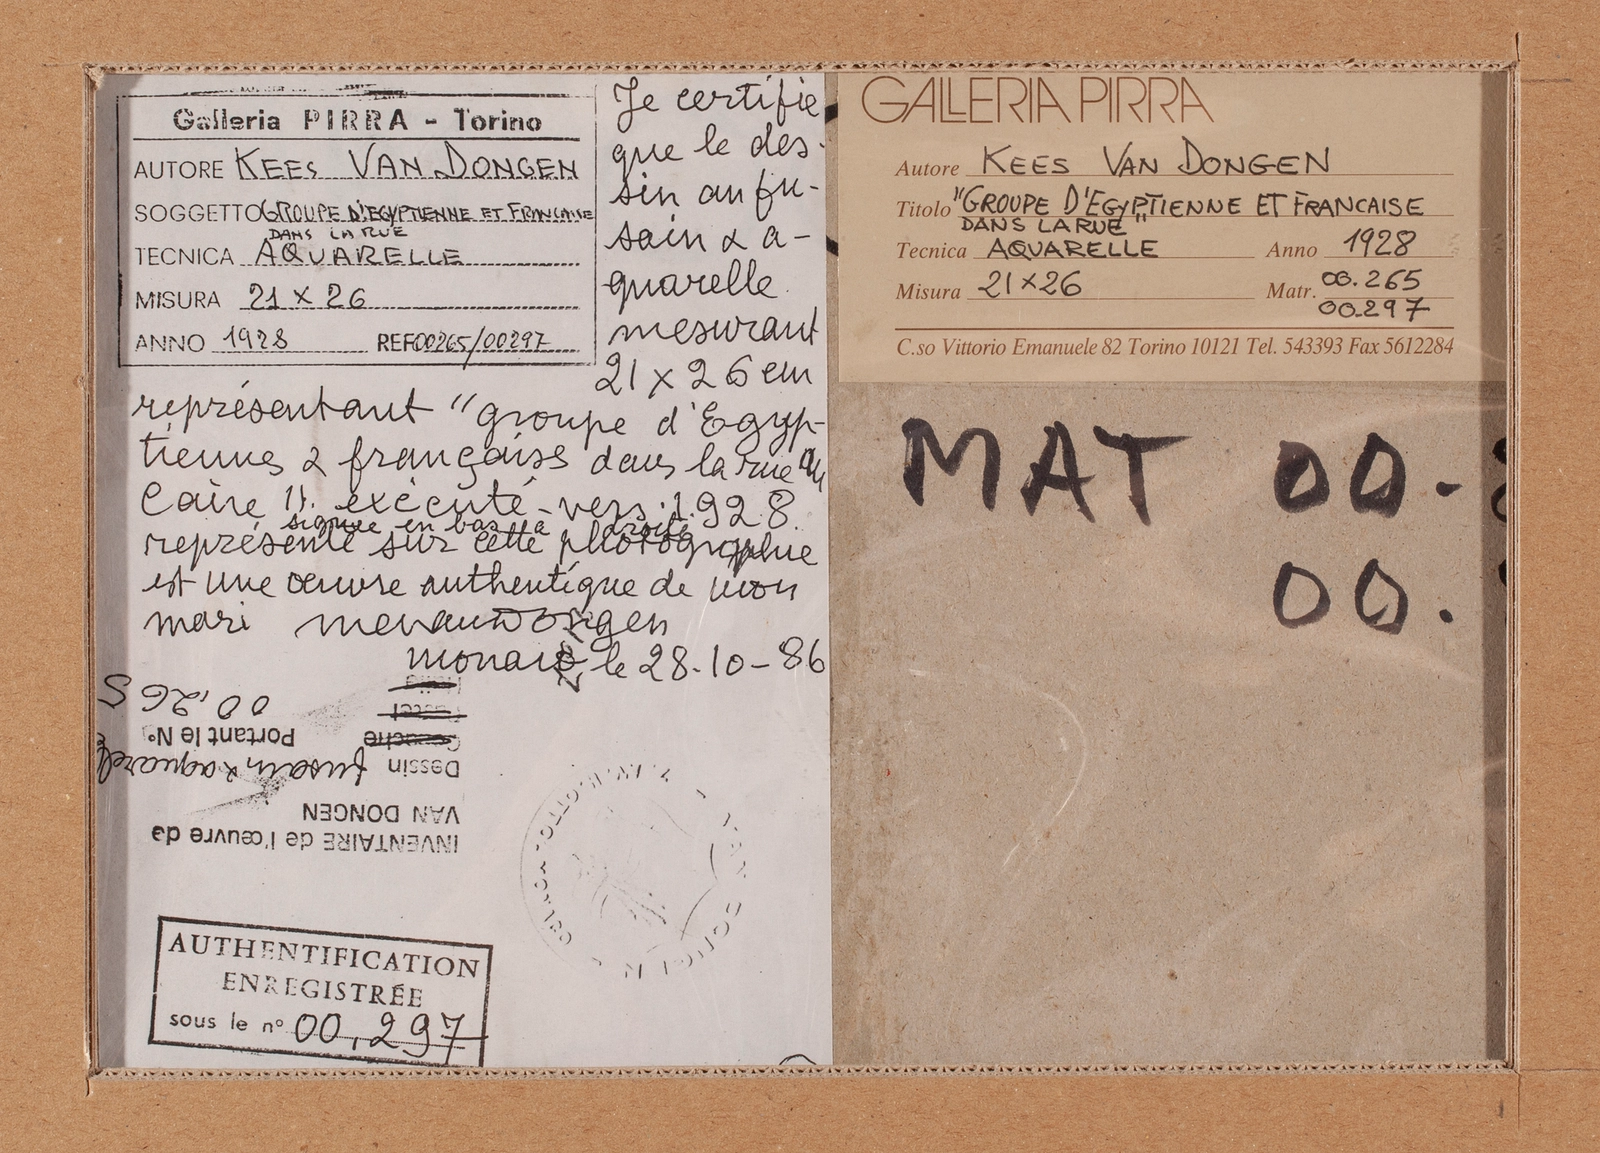 Galleria PIRRA - Torino
AUTORE KEES VAN DONGEN
SOGGETTO GROUPE D'EGYPTIENNE ET FRANCAISE
DANS LA RUE
TECNICA AQUARELLE
MISURA 21 X 26
ANNO 1928 REF 00265/00297
Je certifie
que le des-
sin au fu-
sain & a-
quarelle
mesurant
21 x 26 cm
représentant "groupe d'Egyp-
tiennes & françaises dans la rue au
Caire". exécuté vers 1928.
signée en bas à droite
représenté sur cette photographie
est une œuvre authentique de mon
mari
monaco le 28-10-86
INVENTAIRE de l'œuvre de
VAN DONGEN
Dessin fusain & aquarelle
Gouache
Pastel
Portant le N° 00,265
AUTHENTIFICATION
ENREGISTRÉE
sous le n° 00,297
GALLERIA PIRRA
Autore KEES VAN DONGEN
Titolo "GROUPE D'EGYPTIENNE ET FRANCAISE
DANS LA RUE"
Tecnica AQUARELLE Anno 1928
Misura 21x26 Matr. 00.265
00.297
C.so Vittorio Emanuele 82 Torino 10121 Tel. 543393 Fax 5612284
MAT 00.
00.